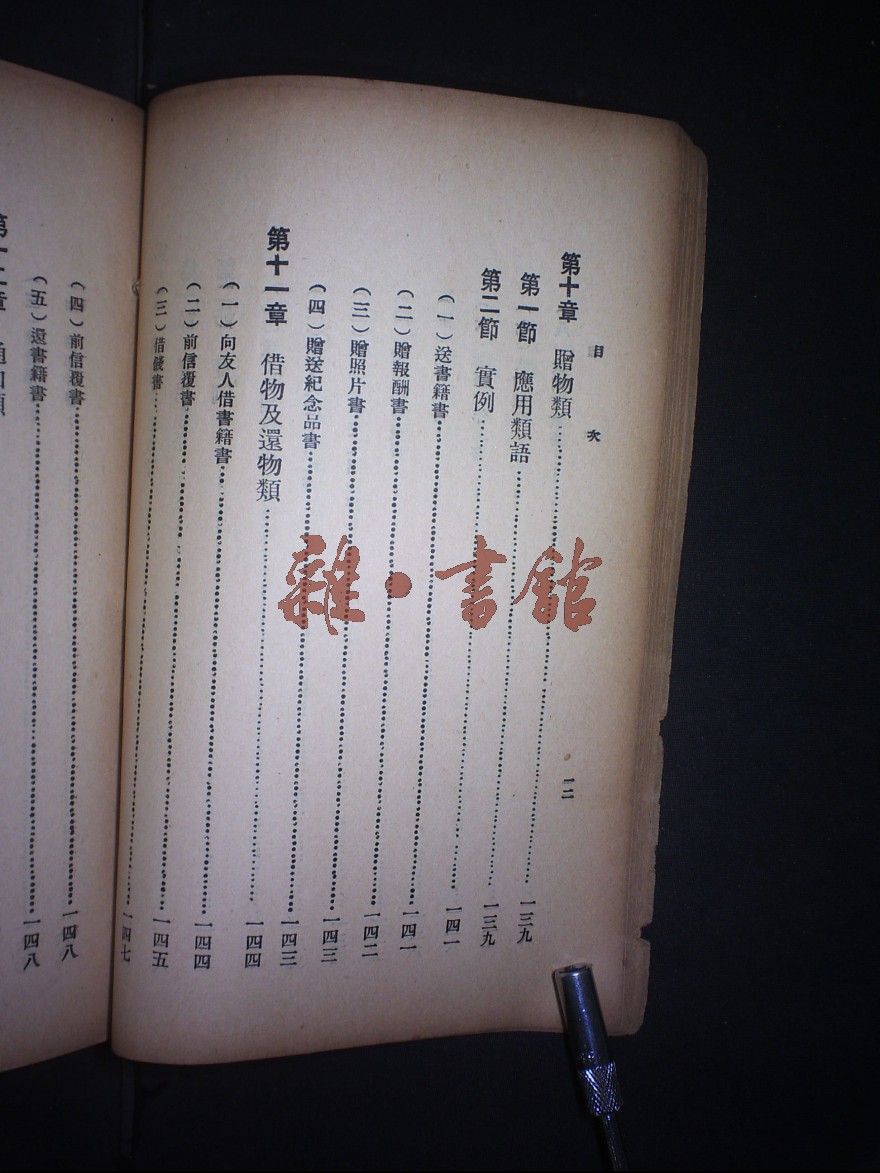 目次 一二
第十章 贈物類……一三九
第一節 應用類語……一三九
第二節 實例……一四一
(一)送書籍書……一四一
(二)贈報酬書……一四二
(三)贈照片書……一四三
(四)贈送紀念品書……一四三
第十一章 借物及還物類……一四四
(一)向友人借書籍書……一四四
(二)前信覆書……一四五
(三)借書……一四七
(四)前信覆書……一四八
(五)還書籍書……一四八
第十二章
雜·書館